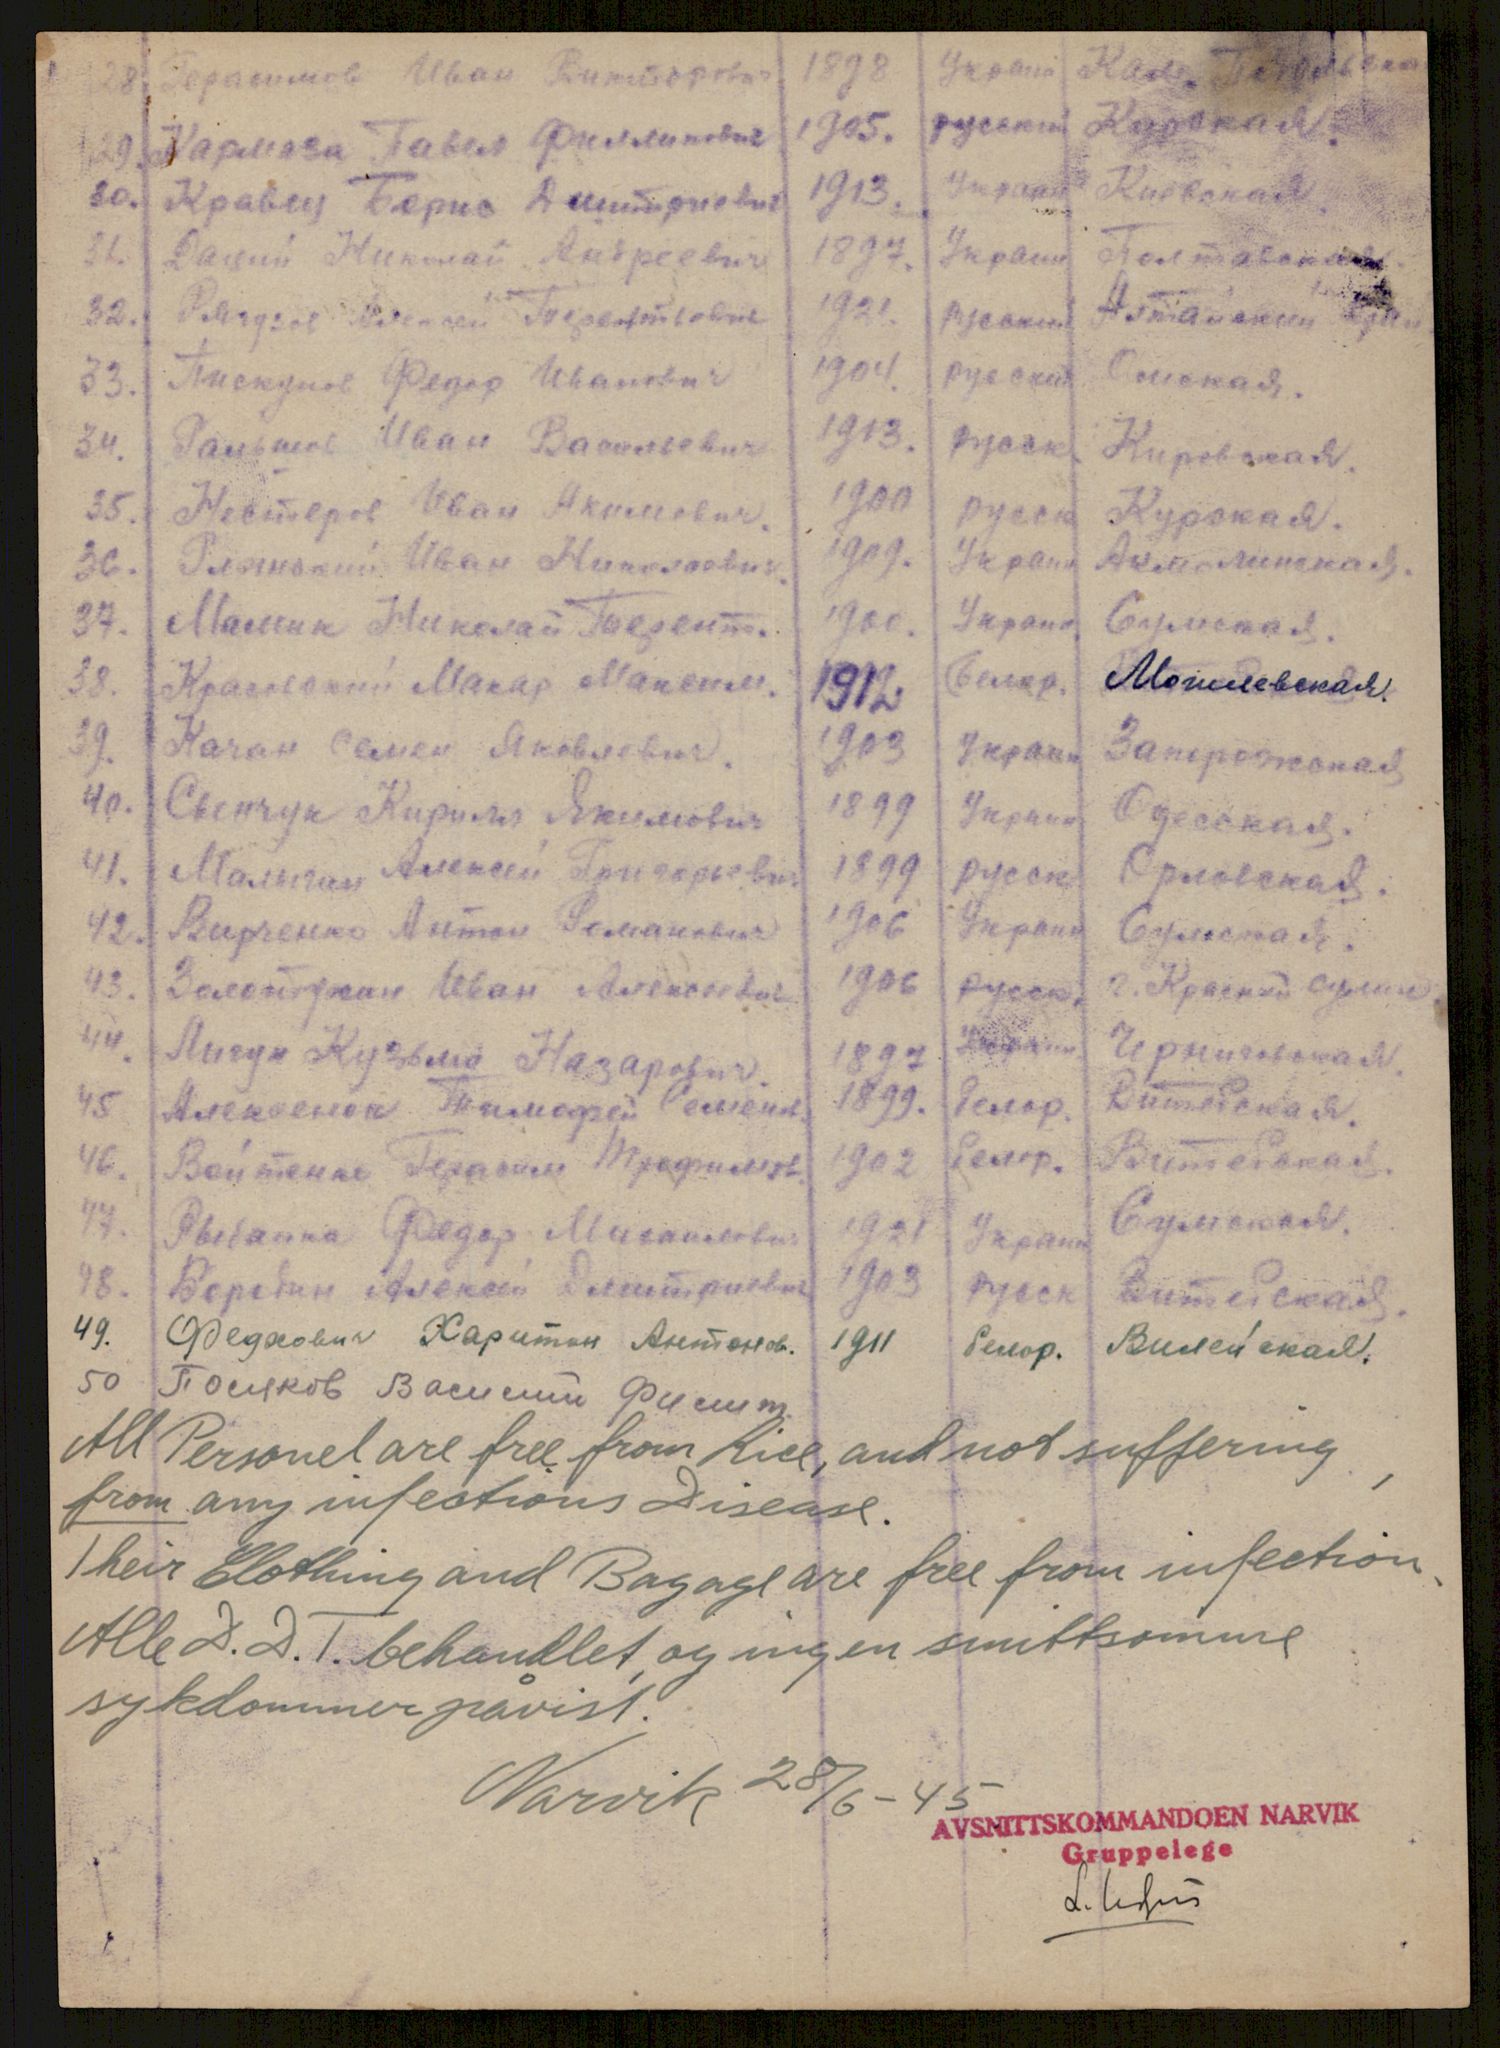 28. Герасимов Иван Викторович 1898 Украин Кам. Подольска
29. Кармаза Павел Филлипович 1905. русский Курская.
30. Кравец Борис Дмитриевич 1913. Украин Киевская.
31. Даций Николай Андреевич 1897. Украин Полтавская.
32. Алексей Терентьевич 1921. русский Алтайский край
33. Пискунов Федор Иванович 1904. русский Омская.
34. Иван Васильевич 1913. русск. Кировская.
35. Нестеров Иван Акимович. 1900 русск Курская.
36. Иван Николаевич. 1909. Украин Акмолинская.
37. Мамик Николай Терент. 1900. Украин. Сумская.
38. Макар Максим. 1912. белор. Могилевская.
39. Качан Семен Яковлевич. 1903 Украин Запорожская
40. Кирилл Якимович 1899 Украин Одесская.
41. Малыган Алексей Григорьевич 1899 русск Орловская.
42. Вирченко Антон Романович 1906 Украин Сумская.
43. Иван Алексеевич 1906 русск. г. Красный Сулин.
44. Лигун Кузьма Назарович. 1897 Украин. Черниговская.
45 Алексенок Тимофей Семен. 1899. белор. Витебская.
46. Войтенко Герасим Трофимов. 1902 белор. Витебская.
47. Рыбалка Федор Михайлович 1921 Украин Сумская.
48. Воробин Алексей Дмитриевич 1903 русск Витебская.
49. Федкович Харитон Антонов. 1911 белор. Вилейская.
50 Поляков Василий Филип.
All Personel are free from Lice, and not suffering,
from any infections Disease.
Their Clothing and Bagage are free from infection.
Alle D.D.T. behandlet, og ingen smittsomme
sykdommer påvist.
Narvik 28/6-45
AVSNITTSKOMMANDOEN NARVIK
Gruppelege